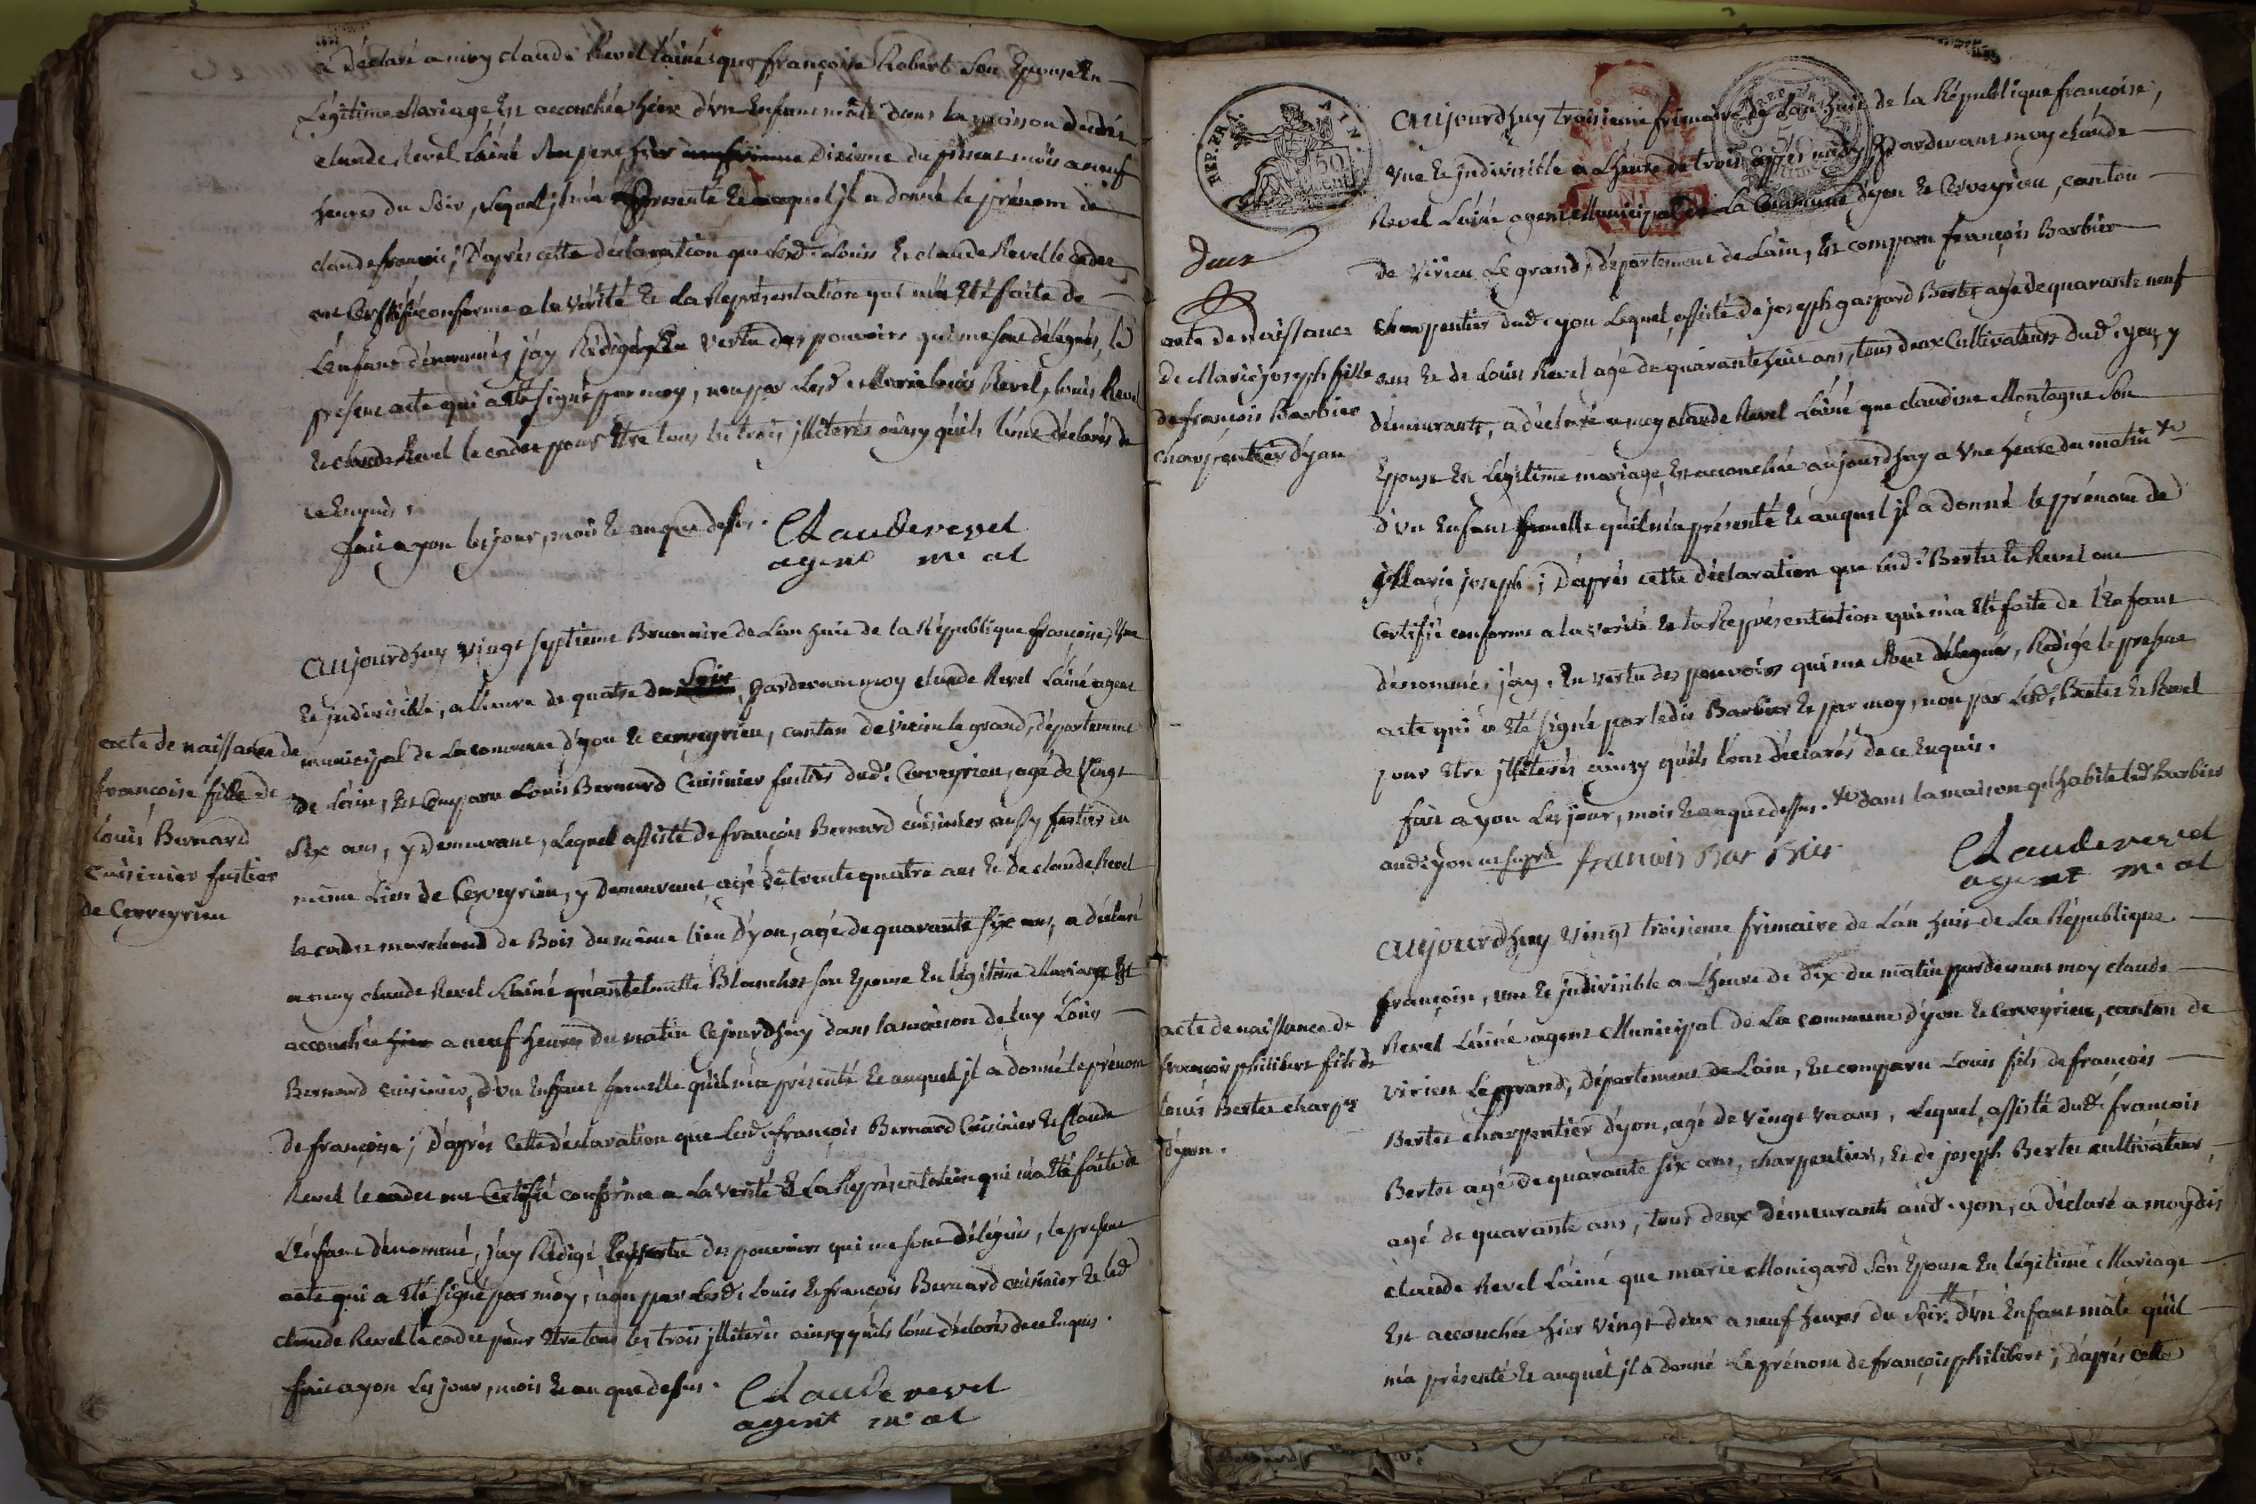 a déclaré a moy claude Revel l'ainé que françoise Robert son Epouse En
Légitime Mariage Est accouchée hier d'un Enfant mâle dans la maison dudit
claude Revel l'ainé son pere dixieme du présent mois a neuf
heures du soir, lequel il m'a présenté Et auquel il a donné le prénom de
claude françois; D'après cette déclaration que lesd. Louis Et claude Revel le cadet
ont Certifié conforme a la vérité Et la Représentation qui m'a Eté faite de
L'enfant dénommé, j'ay Rédigé, En vertu des pouvoirs qui me sont délégués, le
present acte qui a Eté signé par moy, non par Lesd. Marie Louis Revel, Louis Revel
Et claude Revel le cadet pour Etre tous les trois jlliterés ainsy qu'ils l'ont déclarés de
ce Enquis.
fait a yon les jour, mois Et an que dessus.
Claude revel
agent m.al
acte de naissance de
françoise fille de
Louis Bernard
Cuisinier fustier
de Cerveyrieu
Aujourd'huy vingt septieme Brumaire de L'an huit de la République françoise, Une
Et jndivisible, a l'heure de quatre du soir, pardevant moy claude Revel L'ainé agent
municipal de La commune d'yon Et cerveyrieu, canton de virieu le grand, département
De L'ain, Est Comparu Louis Bernard Cuisinier fustier dud. Cerveyrieu, agé de Vingt
Six ans, y Demeurant, Lequel assisté de françois Bernard cuisinier aussy fustier du
même Lieu de Cerveyrieu, y Demeurant, agé de trente quatre ans Et de claude Revel
le cadet marchand de Bois du même lieu D'yon, agé de quarante six ans, a déclaré
a moy claude Revel L'ainé qu'antelmette Blanchet son Epouse En légitime Mariage Est
accouchée hier a neuf heures du matin Cejourd'huy dans la maison de luy Louis
Bernard cuisinier, d'un Enfant femelle qu'il m'a présenté Et auquel il a donné le prénom
de françoise; D'après Cette déclaration que Lesd. françois Bernard Cuisinier Et Claude
Revel le cadet ont Certifié conforme a La vérité Et La Représentation qui m'a Eté faite de
L'Enfant dénommé, j'ay Rédigé En vertu des pouvoirs qui me sont délégués, le present
acte qui a Eté signé par moy, non par Lesd. Louis Et françois Bernard cuisinier Et led.
claude Revel le cadet pour Etre tous les trois jlliterés ainsy qu'ils l'ont déclarés de ce Enquis.
fait a yon Les jour, mois Et an que dessus.
Claude revel
agent m.al
REP. FRA.
AIN.
50
deux
acte de naissance
de Marie joseph fille
de françois Barbier
charpentier d'yon
Aujourd'huy troisieme frimaire de L'an huit de la République françoise,
Une Et jndivisible a L'heure de trois après midy, Pardevant moy claude
Revel L'ainé agent Municipal de La Commune D'yon Et Cerveyrieu, canton
de Virieu Le grand, département de L'ain, Est comparu françois Barbier
charpentier dud. yon Lequel assisté de joseph gaspard Bertet agé de quarante neuf
ans Et de Louis Revel agé de quarante huit ans, tous deux Cultivateurs dud. yon, y
démeurants, a déclaré a moy claude Revel L'ainé que claudine Montagne son
Epouse En Légitime mariage, Est accouchée aujourd'huy a Une heure du matin
d'un Enfant femelle qu'il m'a présenté Et auquel il a donné le prénom de
Marie joseph; D'après cette déclaration que Lesd. Bertet Et Revel ont
Certifié conforme a la verité Et la Représentation qui m'a Eté faite de l'Enfant
dénommé, j'ay, En vertu des pouvoirs qui me sont délégués, Rédigé le present
acte qui a Eté signé par ledit Barbier Et par moy, non par Lesd. Bertet Et Revel
pour Etre jlliterés ainsy qu'ils l'ont déclarés de ce Enquis.
fait a yon Les jour, mois Et an que dessus. dans la maison qu'habite led. Barbier
aud. yon françois Bar Bier
Claude revel
agent m.al
acte de naissance de
françois philibert fils de
Louis Bertet charp.er
d'yon.
Aujourd'huy vingt troisieme frimaire de L'an huit de La République
françoise, une Et jndivisible a L'heure de dix du matin pardevant moy claude
Revel L'ainé agent Municipal de La commune D'yon Et Cerveyrieu, canton de
virieu Le grand, département de L'ain, Est comparu Louis fils de françois
Bertet charpentier d'yon, agé de Vingt un ans, Lequel, assisté dud. françois
Bertet agé de quarante six ans, charpentier, Et de joseph Bertet cultivateur,
agé de quarante ans, tous deux démeurants aud. yon, a déclaré a moy dit
claude Revel L'ainé que marie Monigard son Epouse En légitime Mariage
Est accouchée hier vingt deux a neuf heures du soir d'un Enfant mâle qu'il
m'a présenté Et auquel il a donné Le prénom de françois philibert; D'après cette